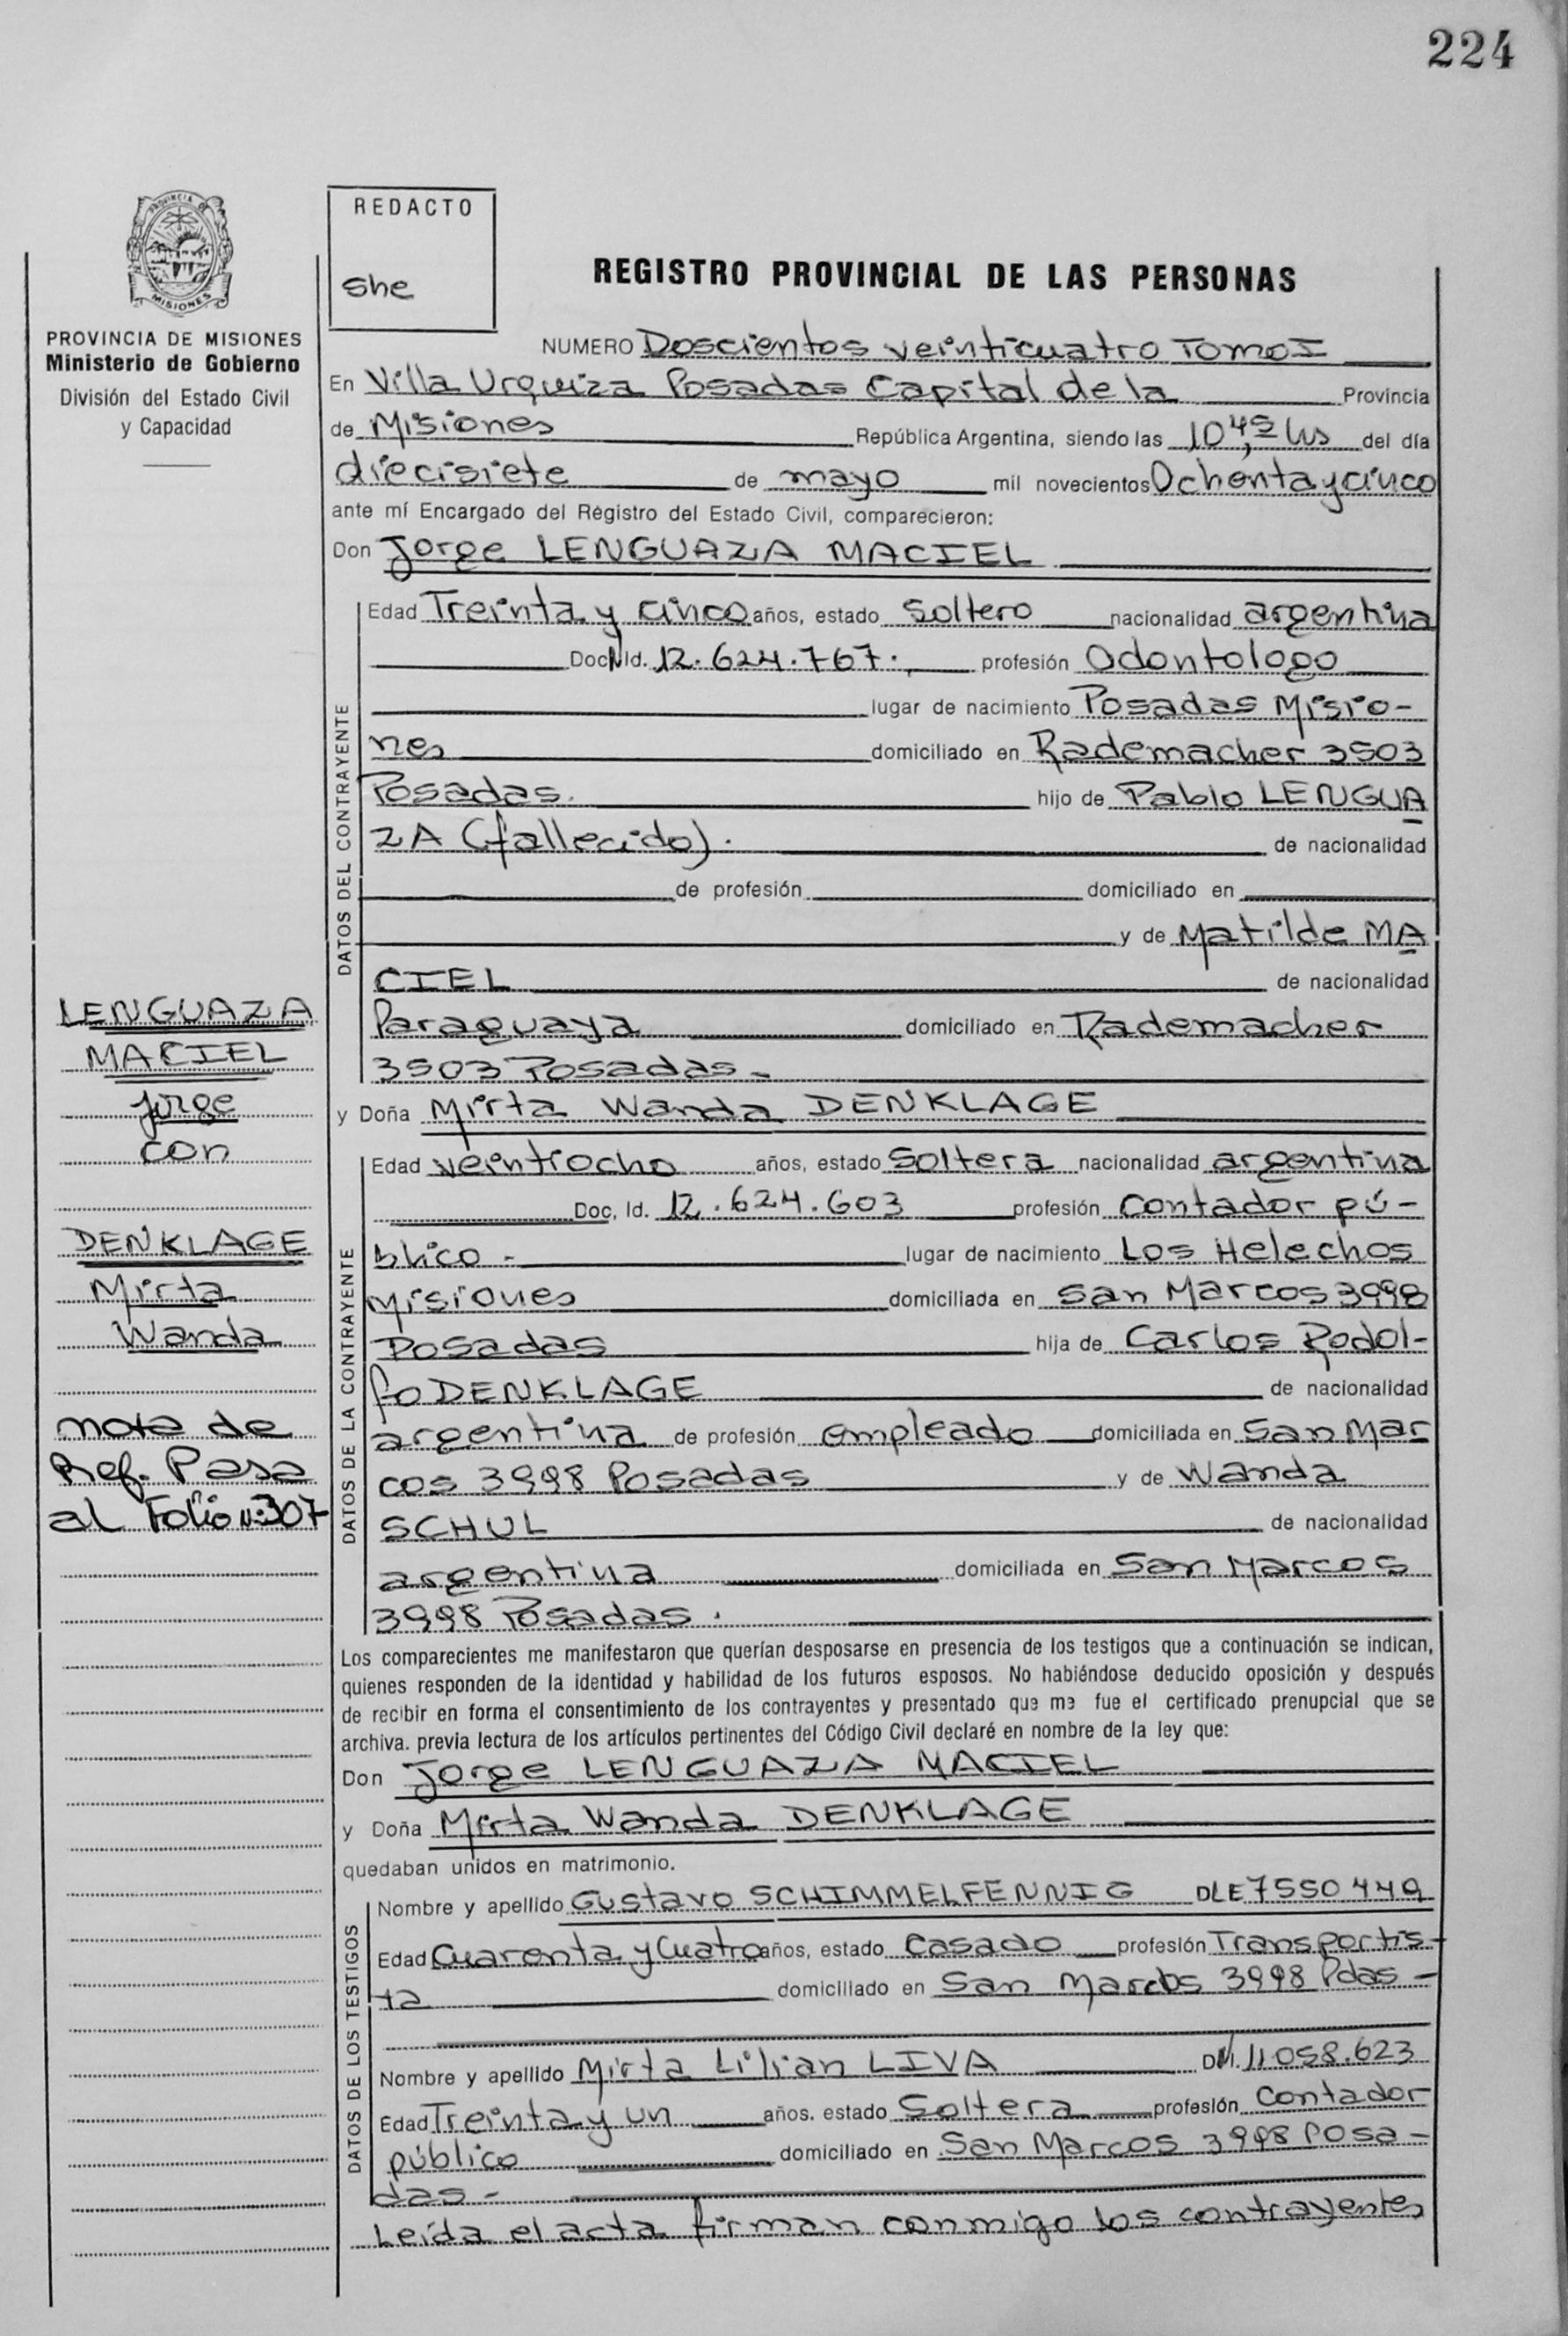 224
PROVINCIA DE
MISIONES
PROVINCIA DE MISIONES
Ministerio de Gobierno
División del Estado Civil
y Capacidad
REDACTO
She
REGISTRO PROVINCIAL DE LAS PERSONAS
NUMERO Doscientos veinticuatro Tomo I
En Villa Urquiza Posadas Capital de la Provincia
de Misiones República Argentina, siendo las 10,45 hs del día
diecisiete de mayo mil novecientos Ochenta y cinco
ante mí Encargado del Registro del Estado Civil, comparecieron:
Don Jorge LENGUAZA MACIEL
DATOS DEL CONTRAYENTE
Edad Treinta y cinco años, estado Soltero nacionalidad argentina
Doc. Id. 12.624.767. profesión Odontologo
lugar de nacimiento Posadas Misio-
nes domiciliado en Rademacher 3503
Posadas. hijo de Pablo LENGUA
ZA (fallecido). de nacionalidad
de profesión domiciliado en
y de Matilde MA
CIEL de nacionalidad
Paraguaya domiciliado en Rademacher
3503 Posadas-
y Doña Mirta Wanda DENKLAGE
DATOS DE LA CONTRAYENTE
Edad veintiocho años, estado Soltera nacionalidad argentina
Doc, Id. 12.624.603 profesión Contador pú-
blico - lugar de nacimiento Los Helechos
Misiones domiciliada en San Marcos 3998
Posadas hija de Carlos Rodol-
fo DENKLAGE de nacionalidad
argentina de profesión empleado domiciliada en San Mar
cos 3998 Posadas y de Wanda
SCHUL de nacionalidad
argentina domiciliada en San Marcos
3998 Posadas.
Los comparecientes me manifestaron que querían desposarse en presencia de los testigos que a continuación se indican,
quienes responden de la identidad y habilidad de los futuros esposos. No habiéndose deducido oposición y después
de recibir en forma el consentimiento de los contrayentes y presentado que me fue el certificado prenupcial que se
archiva. previa lectura de los artículos pertinentes del Código Civil declaré en nombre de la ley que:
Don Jorge LENGUAZA MACIEL
y Doña Mirta Wanda DENKLAGE
quedaban unidos en matrimonio.
DATOS DE LOS TESTIGOS
Nombre y apellido Gustavo SCHIMMELFENNIG DLE 7550449
Edad Cuarenta y Cuatro años, estado Casado profesión Transportis-
ta domiciliado en San Marcos 3998 Pdas-
Nombre y apellido Mirta Lilian LIVA DNI. 11058.623
Edad Treinta y un años. estado Soltera profesión Contador
público domiciliado en San Marcos 3998 Posa-
das-
Leída el acta firman conmigo los contrayentes
LENGUAZA
MACIEL
Jorge
con
DENKLAGE
Mirta
Wanda
nota de
Ref. Pasa
al Folio Nº 307